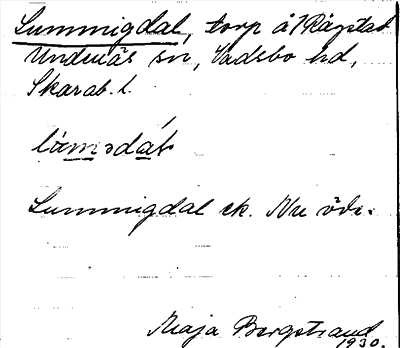 Lummigdal, torp å Rågstad
Undenäs sn, Vadsbo hd,
Skarab. l.
Lummigdal ek. Nu öde.
Maja Bergstrand
1930.